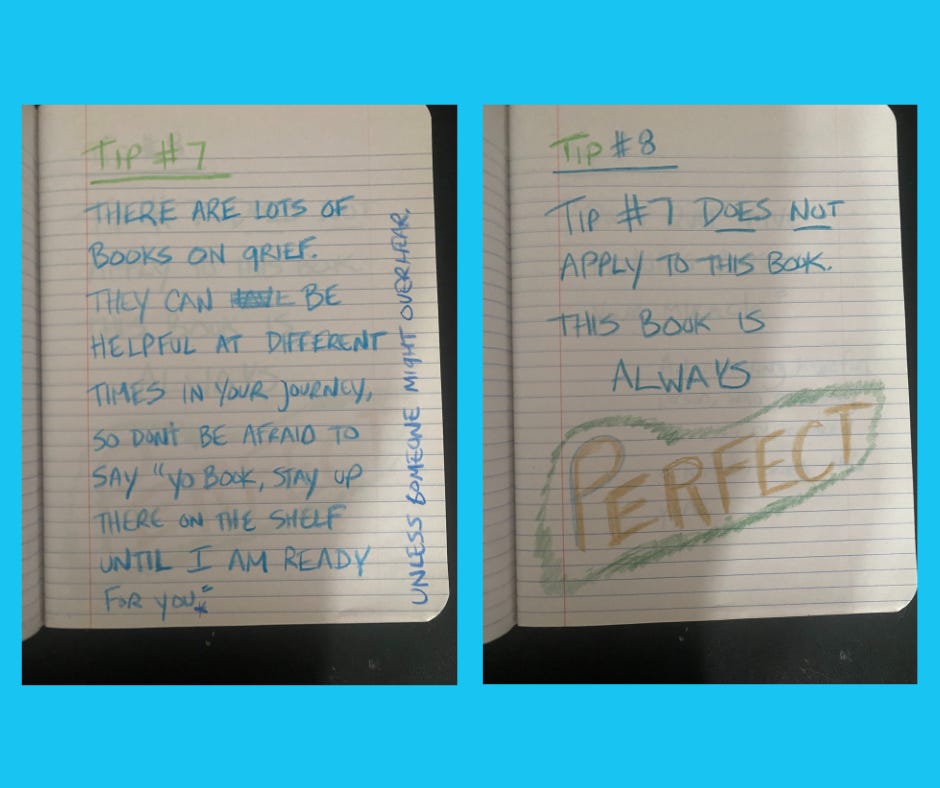 TIP #7
THERE ARE LOTS OF
BOOKS ON GRIEF.
THEY CAN BE
HELPFUL AT DIFFERENT
TIMES IN YOUR JOURNEY,
SO DON'T BE AFRAID TO
SAY "YO BOOK, STAY UP
THERE ON THE SHELF
UNTIL I AM READY
FOR YOU."*
UNLESS SOMEONE MIGHT OVERHEAR.
TIP #8
TIP #7 DOES NOT
APPLY TO THIS BOOK.
THIS BOOK IS
ALWAYS
PERFECT